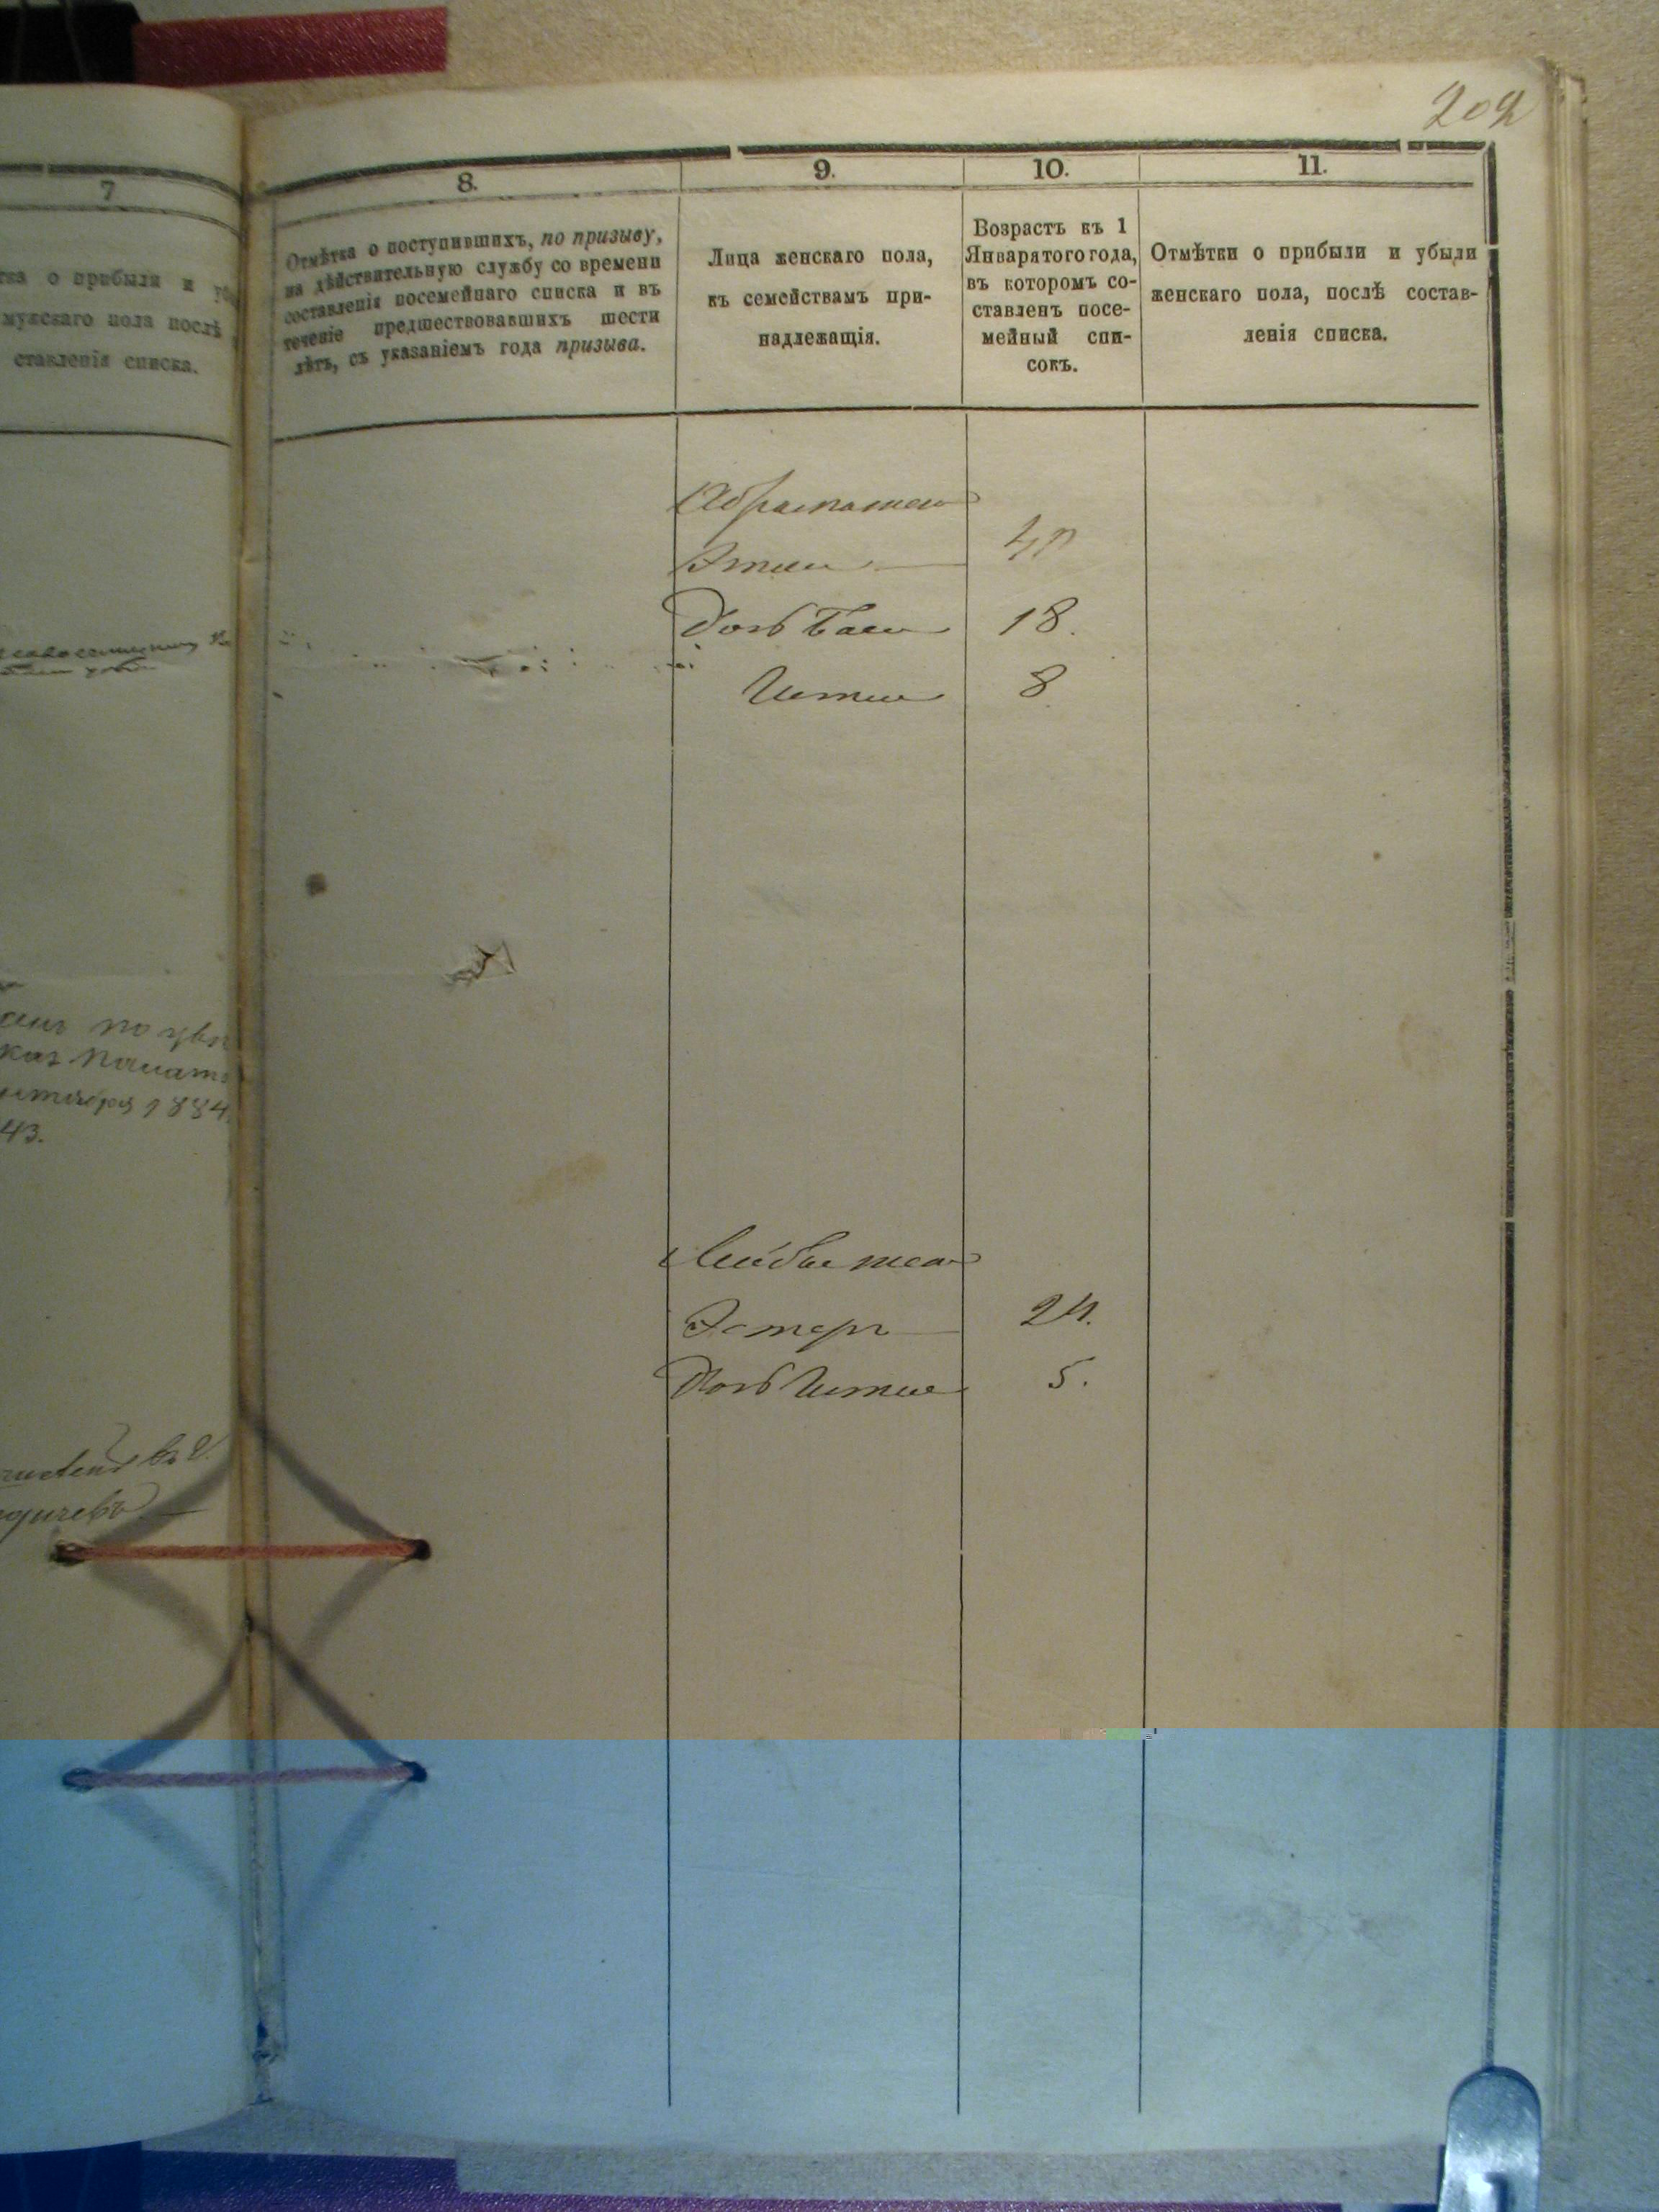 202
7
8.
9.
10.
11.
о прибыли и
мужскаго пола послѣ
ставленія списка.
Отмѣтка о поступившихъ, по призыву,
на дѣйствительную службу со времени
составленія посемейнаго списка и въ
теченіе предшествовавшихъ шести
лѣтъ, съ указаніемъ года призыва.
Лица женскаго пола,
къ семействамъ при-
надлежащія.
Возрастъ къ 1
Января того года,
въ которомъ со-
ставленъ посе-
мейный спи-
сокъ.
Отмѣтки о прибыли и убыли
женскаго пола, послѣ состав-
ленія списка.
Абрама жена
40
Дочь Бася 18.
8
по
1884
43.
Лейбы жена
Эстеръ 24.
Дочь 5.